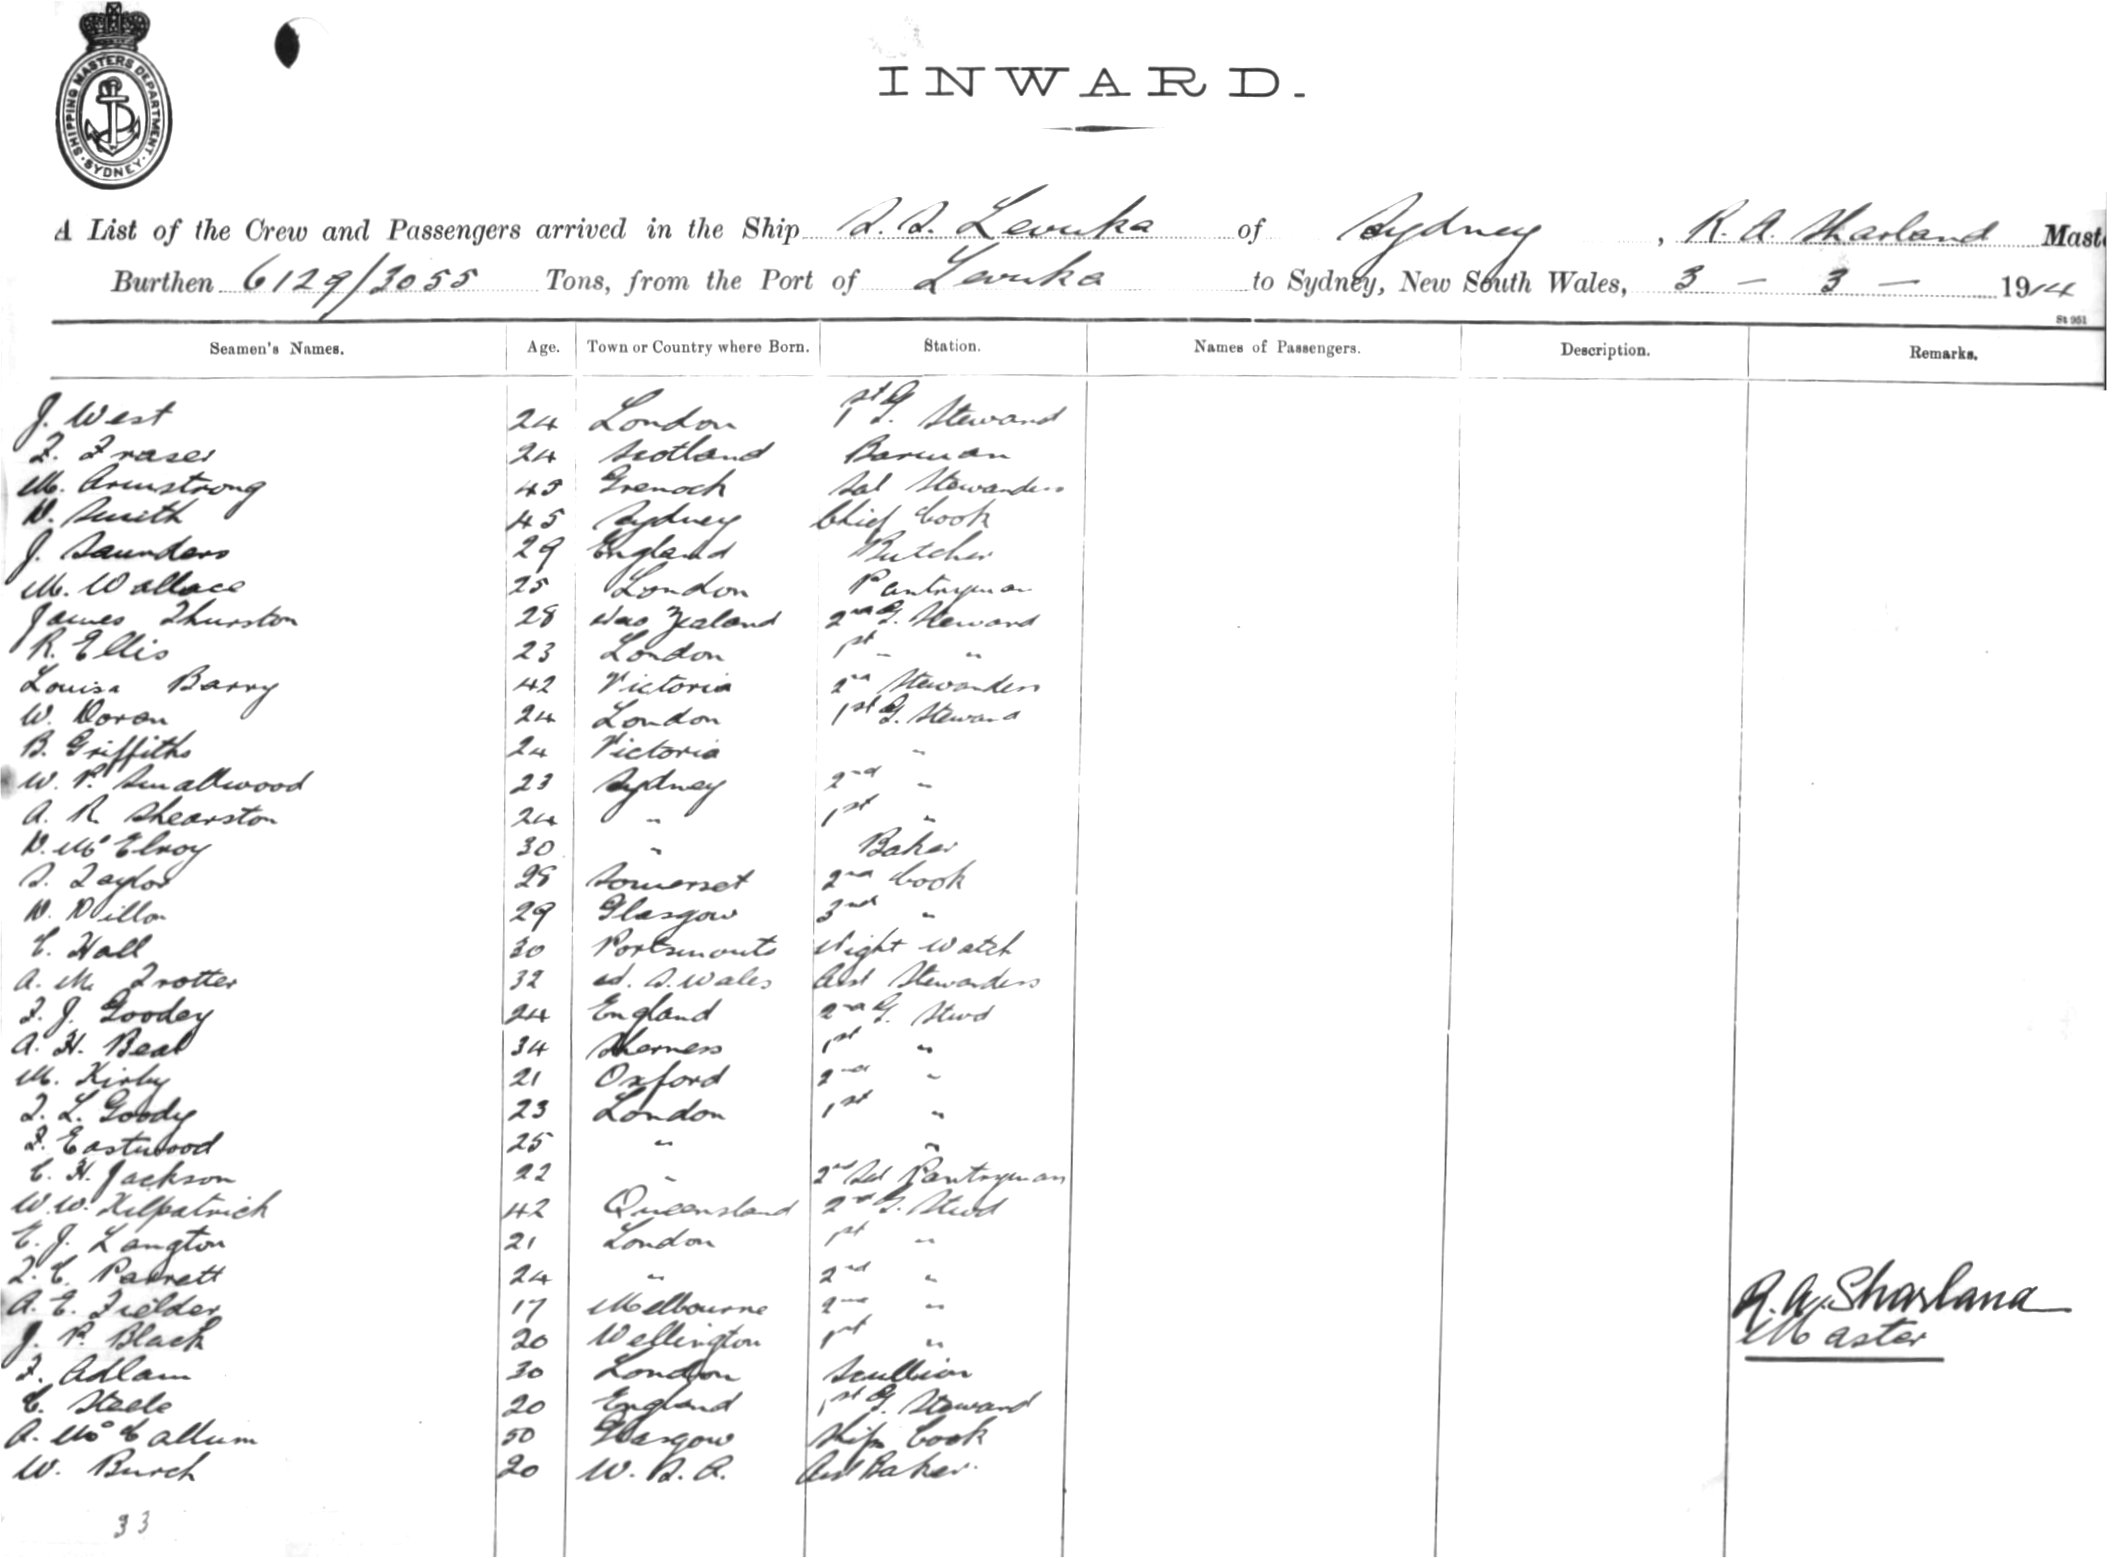 SHIPPING MASTERS DEPARTMENT · SYDNEY ·
INWARD.
A List of the Crew and Passengers arrived in the Ship S. S. Levuka of Sydney, R. A. Sharland Mast
Burthen 6129/3055 Tons, from the Port of Levuka to Sydney, New South Wales, 3 - 3 - 1914
St 951
Seamen's Names. Age. Town or Country where Born. Station. Names of Passengers. Description. Remarks.
J. West 24 London 1st G. Steward
F. Fraser 24 Scotland Barman
M. Armstrong 45 Grenock Sal Stewardess
D. Smith 45 Sydney Chief Cook
J. Saunders 29 England Butcher
M. Wallace 25 London Pantryman
James Thurston 28 New Zealand 2nd G. Steward
R. Ellis 23 London 1st " "
Louisa Barry 42 Victoria 2nd Stewardess
W. Doran 24 London 1st G. Steward
B. Griffiths 24 Victoria "
W. P. Smallwood 23 Sydney 2nd "
A. R. Shearston 24 " 1st "
D. McElroy 30 " Baker
S. Taylor 28 Somerset 2nd Cook
D. Dillon 29 Glasgow 3rd "
C. Hall 30 Portsmouth Night Watch
A. M. Trotter 32 N. S. Wales Asst Stewardess
F. J. Goodey 24 England 2nd G. Stwd
A. H. Beal 34 Sherness 1st "
M. Kirby 21 Oxford 2nd "
F. L. Goody 23 London 1st "
F. Eastwood 25 " "
C. H. Jackson 22 " 2nd Sal Pantryman
W. W. Kilpatrick 42 Queensland 2nd G. Stwd
E. J. Langton 21 London 1st "
T. C. Parrett 24 " 2nd "
A. E. Fielder 17 Melbourne 2nd "
R. A. Sharland
J. P. Black 20 Wellington 1st "
Master
F. Adlam 30 London Scullion
C. Steele 20 England 1st G. Steward
A. McCallum 50 Glasgow Ships Cook
W. Burch 20 W. S. A. Asst Baker.
33